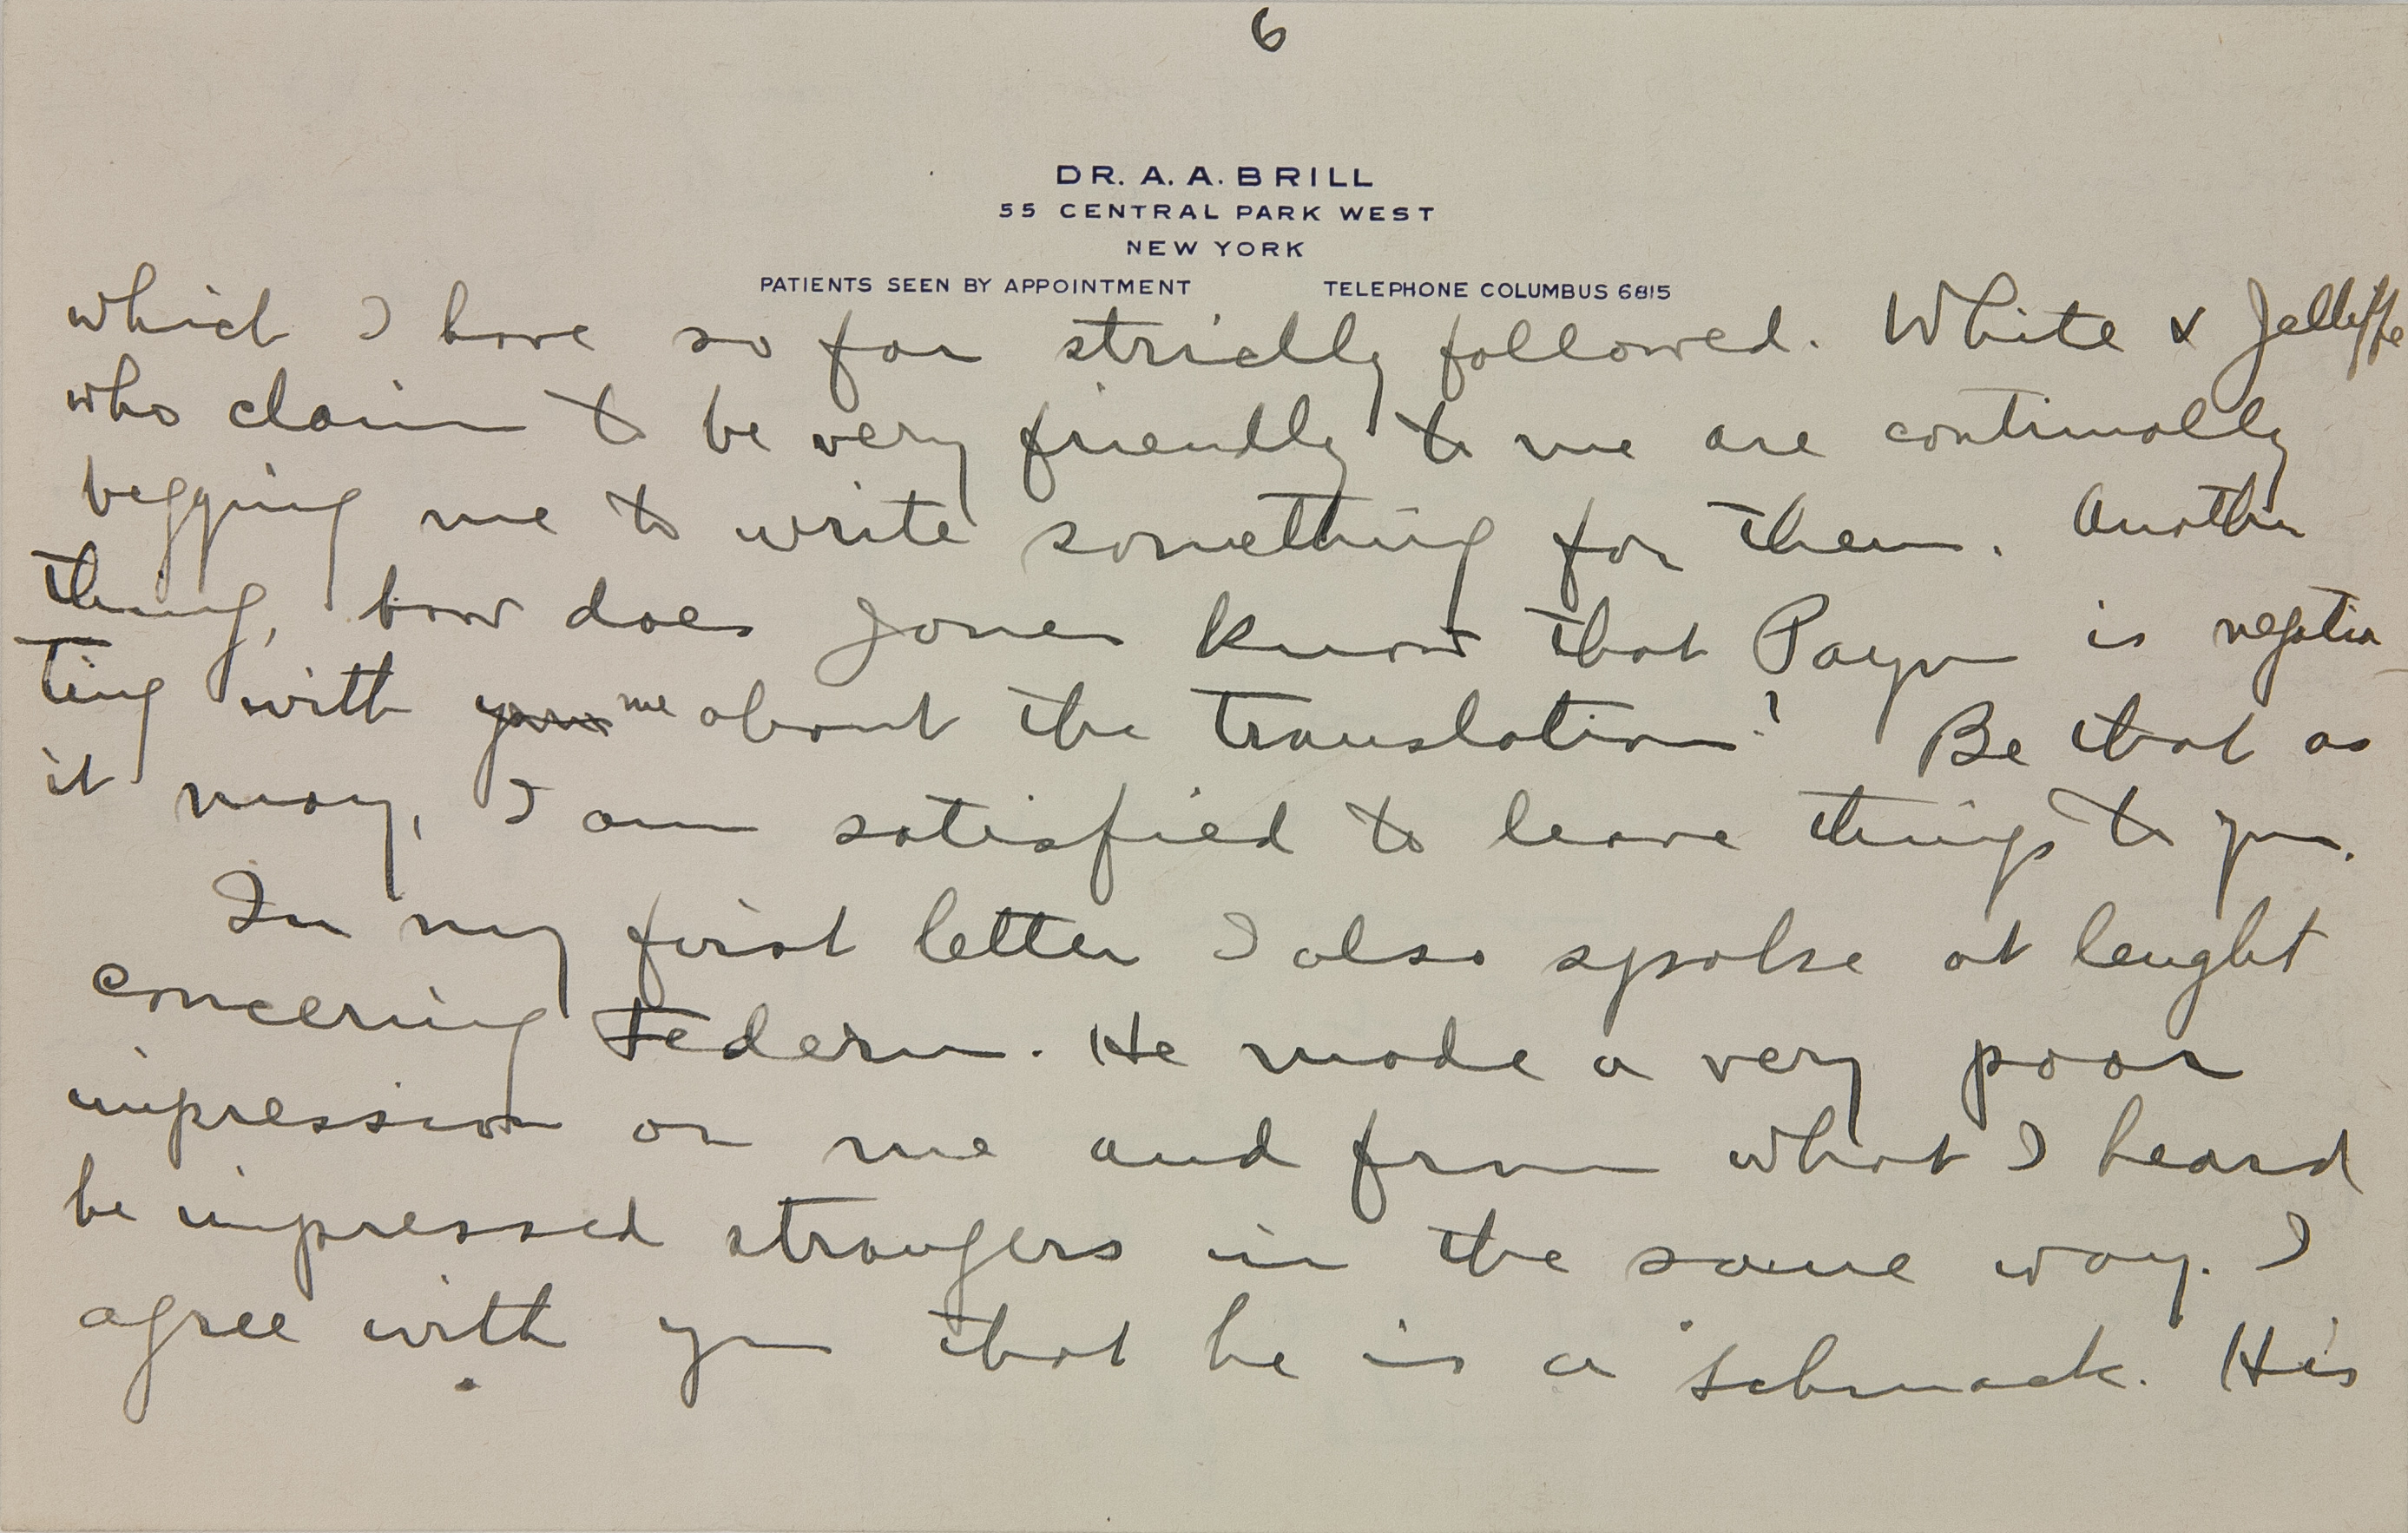 6
DR. A. A. BRILL
55 CENTRAL PARK WEST
NEW YORK
PATIENTS SEEN BY APPOINTMENT TELEPHONE COLUMBUS 6815
which I have so far strictly followed. White & Jelliffe
who claim to be very friendly to me are continually
begging me to write something for them. Another
thing, how does Jones know that Payne is negotia-
ting with your me about the translation? Be that as
it may, I am satisfied to leave things to you.
In my first letter I also spoke at lenght
concering Federn. He made a very poor
impression on me and from what I heard
he impressed strangers in the same way. I
agree with you that he is a Schmock. His